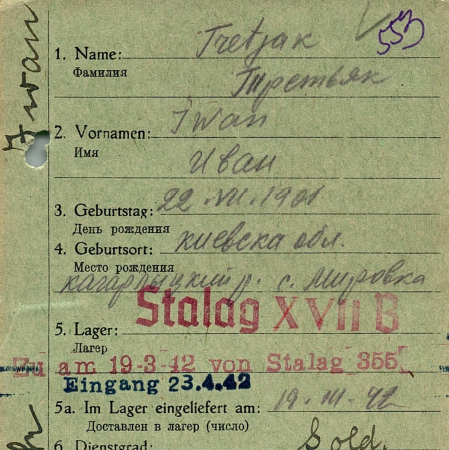 553
Iwan
1. Name: Tretjak
Фамилия Третьяк
2. Vornamen: Iwan
Имя Иван
3. Geburtstag: 22.VII.1901
День рождения
4. Geburtsort: Киевска обл.
Место рождения
Кагарлыцкий р. с. Мировка
Stalag XVII B
5. Lager:
Лагерь
Zu am 19-3-42 von Stalag 355
Eingang 23.4.42
5a. Im Lager eingeliefert am: 19.III.42
Доставлен в лагерь (число)
6. Dienstgrad: Sold.